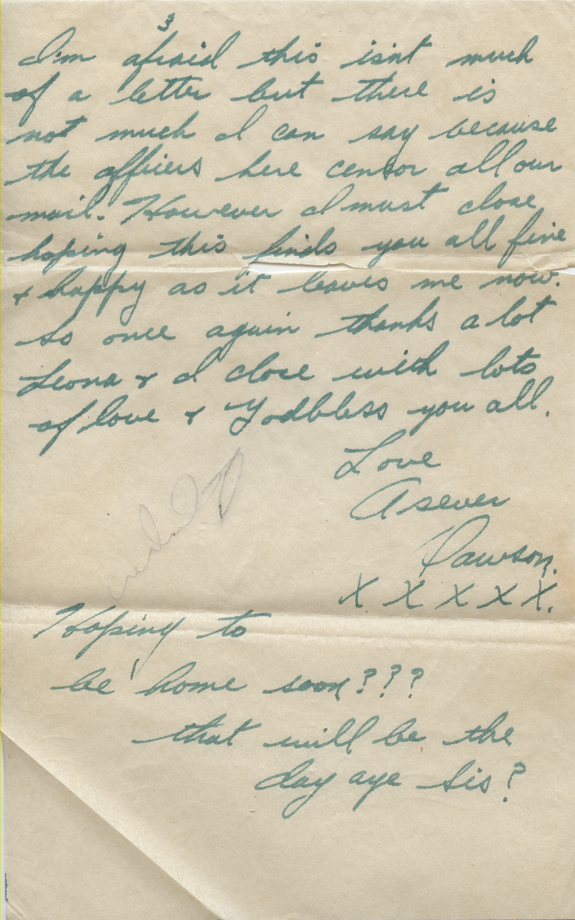 3
I'm afraid this isnt much
of a letter but there is
not much I can say because
the officers here censor all our
mail. However I must close
hoping this finds you all fine
+ happy as it leaves me now.
so once again thanks a lot
Leona + I close with lots
of love + Godbless you all.
Love
Asever
Dawson.
X X X X X.
Hoping to
be home soon???
that will be the
day aye Sis?